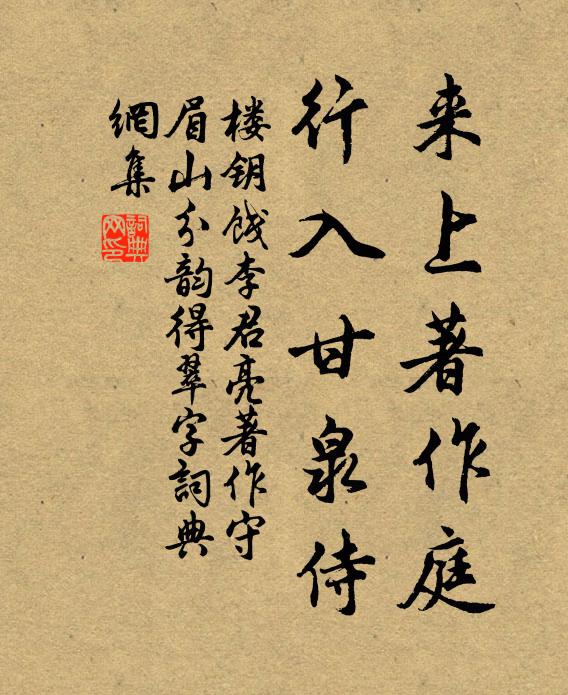 来上著作庭
行入甘泉侍
楼钥饯李君亮著作守
眉山分韵得翠字詞典
網集
詞典网印